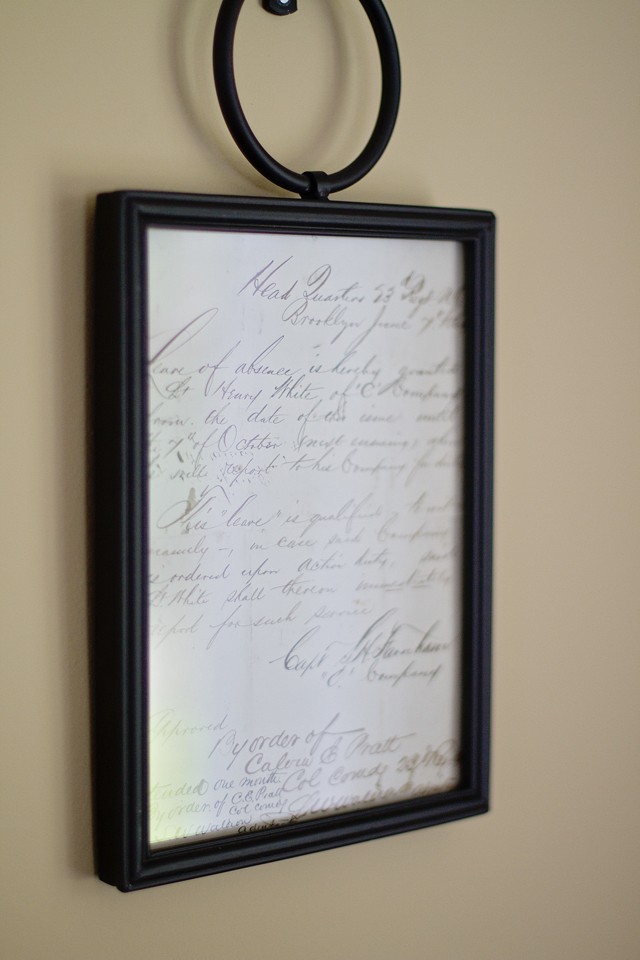 Head Quarters 23d Regt
Brooklyn June 7th
Leave of absence is hereby granted
Lt Henry White of "C" Company
from the date of this issue until
7th of October next ensuing, when
he will report to his Company for duty
This "leave" is qualified,
in case said Company
is ordered upon active duty,
Lt White shall thereon immediately
report for such service
Capt
"C" Company
Approved
By order of
Calvin E Pratt
Col comdg 23d Regt
one month
By order of C.E. Pratt
Col comdg